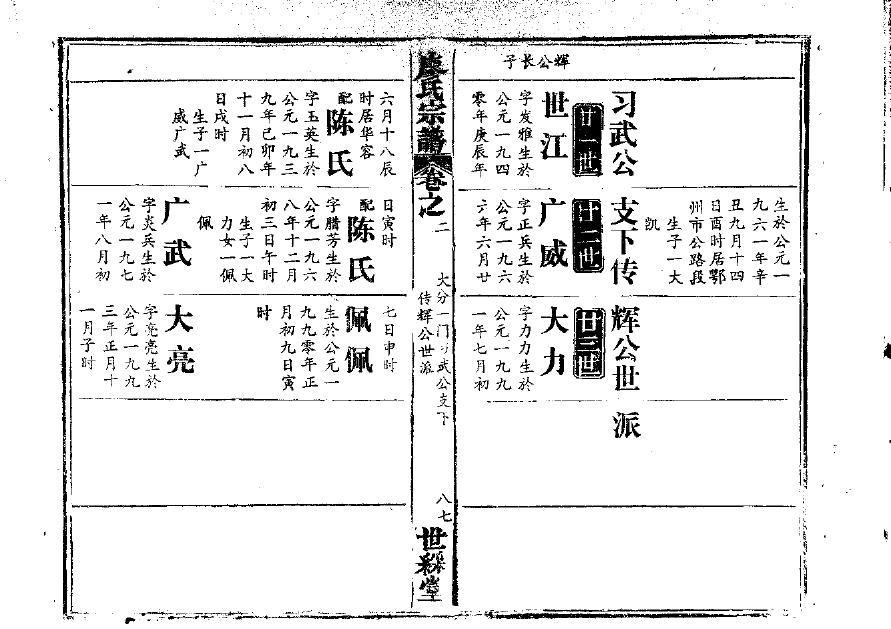 生於公元一
九六一年辛
丑九月十四
日酉时居鄂
州市公路段
生子一大
凯
习武公支下传辉公世派
廿一世
廿二世
廿三世
辉公长子
世江
字发雅生於
公元一九四
零年庚辰年
广威
字正兵生於
公元一九六
六年六月廿
大力
字力力生於
公元一九九
一年七月初
廖氏宗譜
卷之二
大分一门习武公支下
传辉公世派
八七
世綵堂
六月十八辰
时居华容
配陈氏
字玉英生於
公元一九三
九年己卯年
十一月初八
日戌时
生子一广
威广武
日寅时
配陈氏
字腊芳生於
公元一九六
八年十二月
初三日午时
生子一大
力女一佩
佩
广武
字炎兵生於
公元一九七
一年八月初
七日申时
佩佩
生於公元一
九九零年正
月初九日寅
时
大亮
字亮亮生於
公元一九九
三年正月十
一月子时